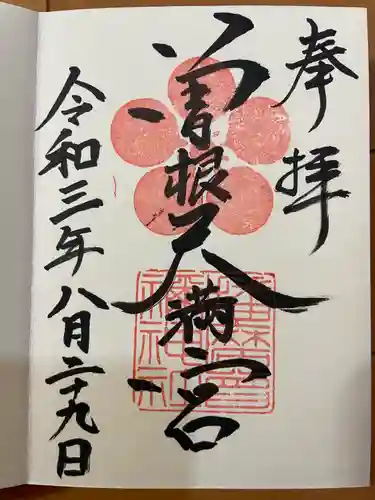 奉拝
曽根天満宮
令和三年八月二十九日